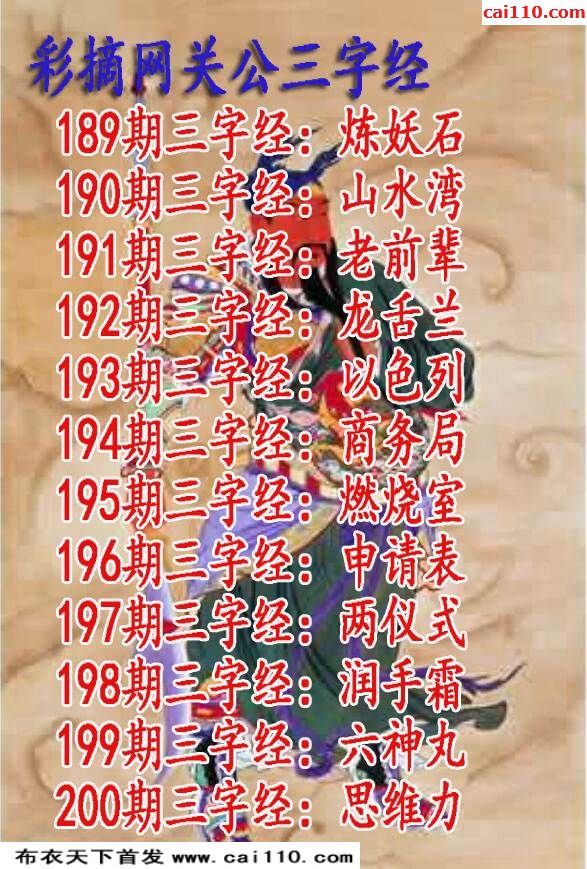 cai110.com
彩摘网关公三字经
189期三字经：炼妖石
190期三字经：山水湾
191期三字经：老前辈
192期三字经：龙舌兰
193期三字经：以色列
194期三字经：商务局
195期三字经：燃烧室
196期三字经：申请表
197期三字经：两仪式
198期三字经：润手霜
199期三字经：六神丸
200期三字经：思维力
布衣天下首发 www.cai110.com